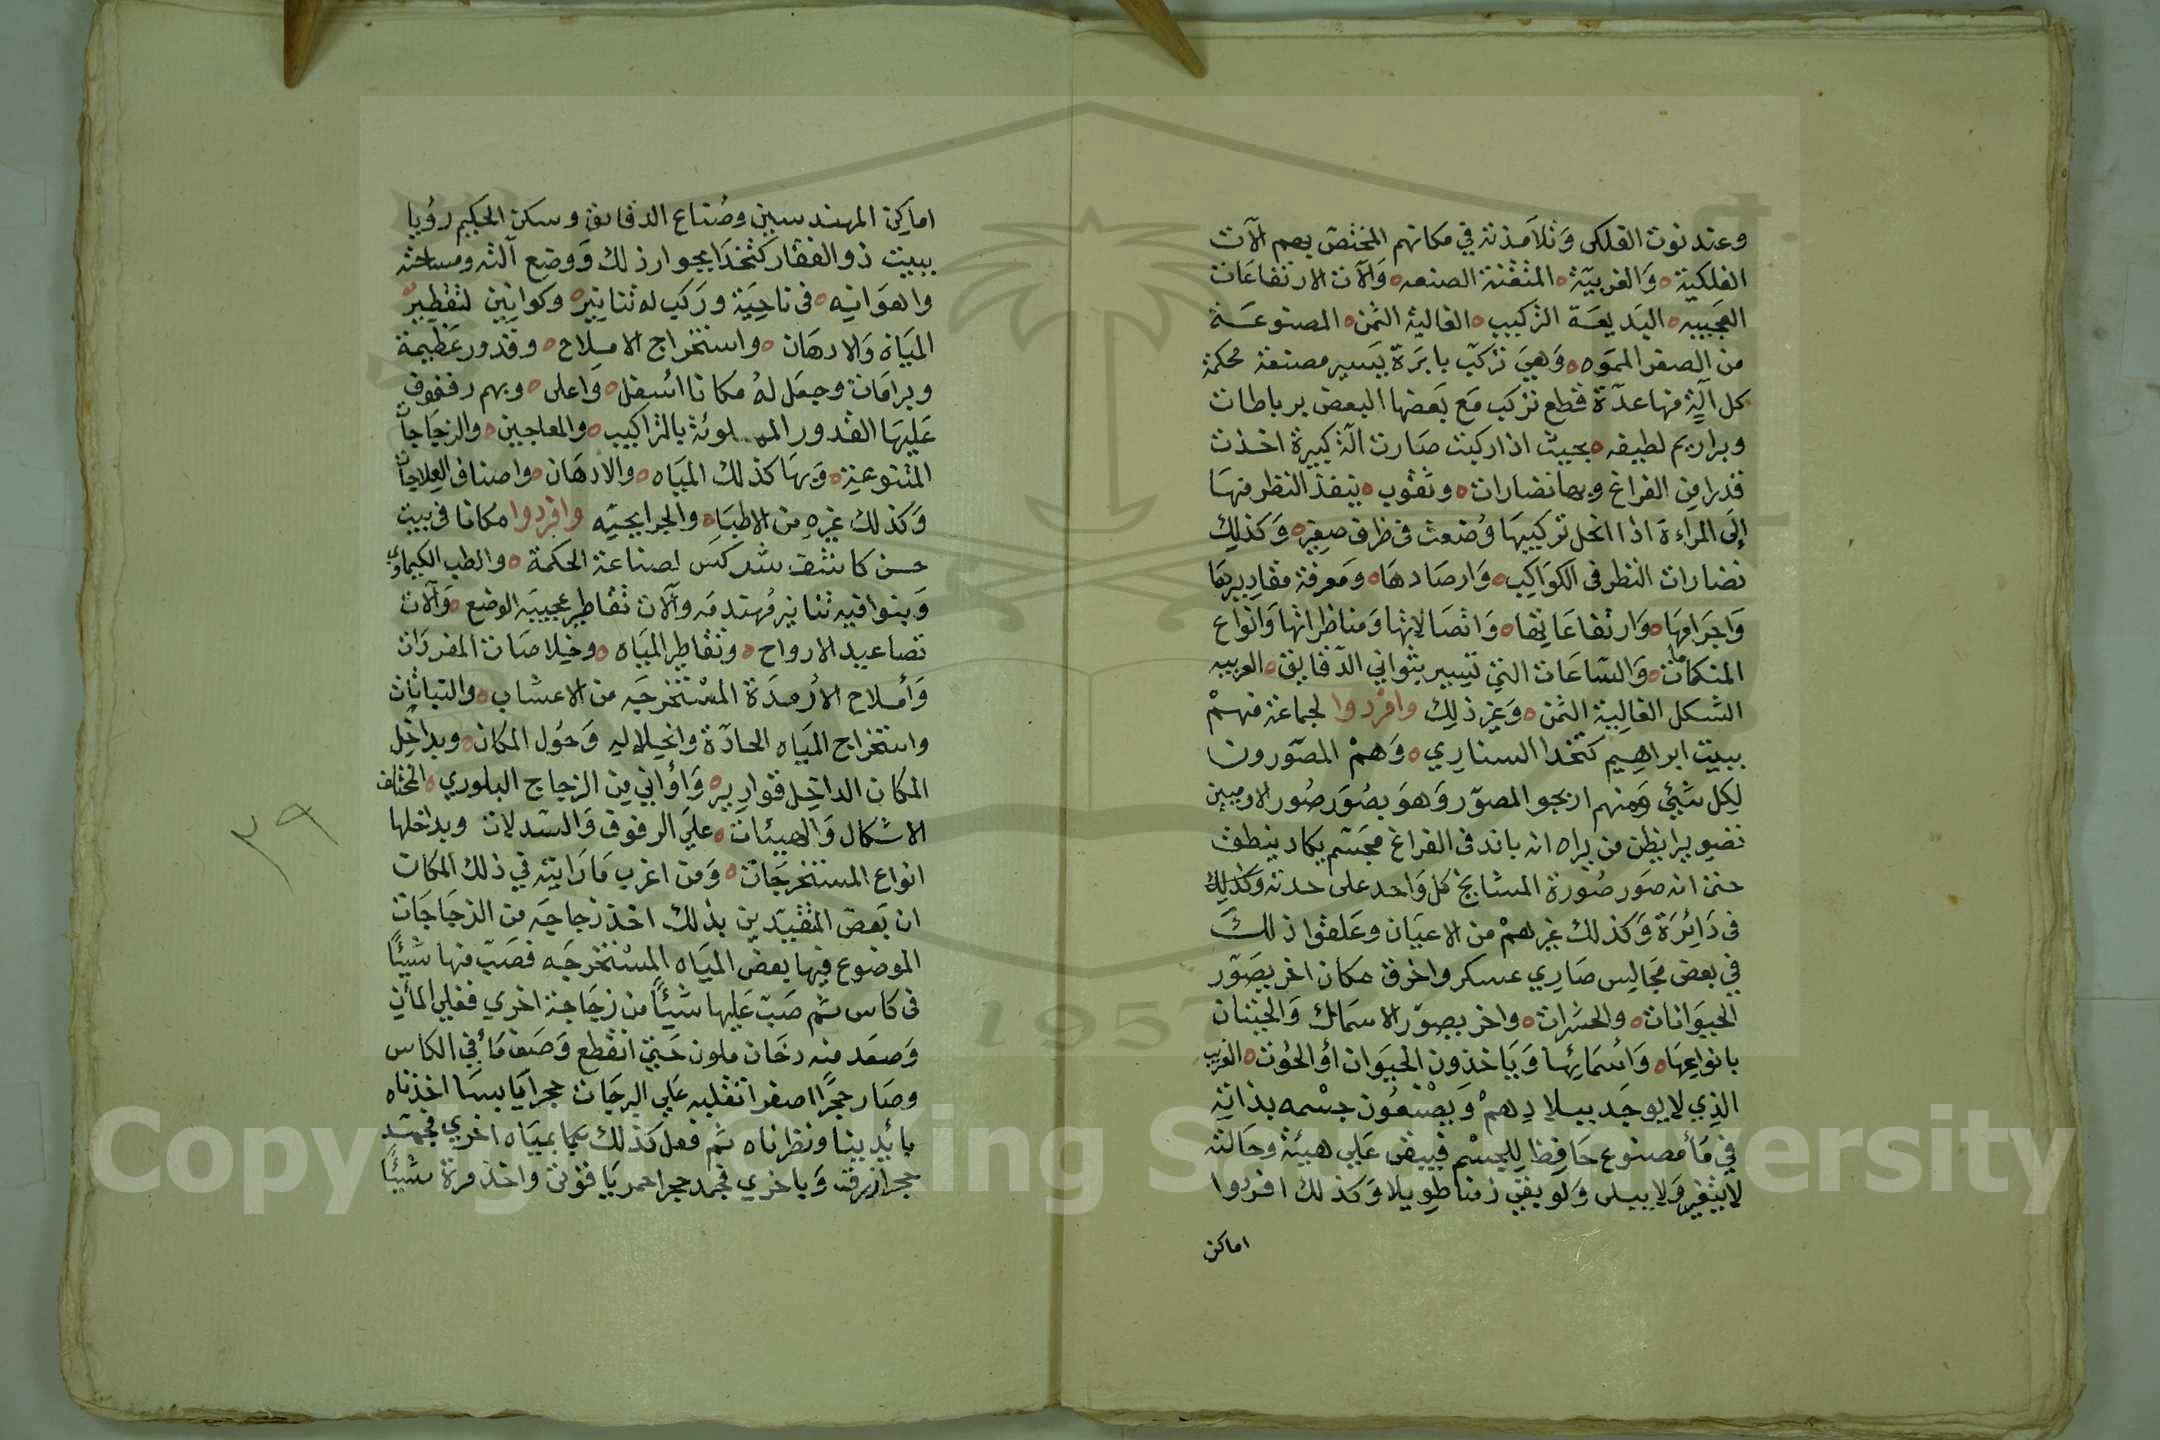 وعند توت الفلكى وَتلاَمذته في مكانهم المختصّ بهم الآت
الفلكيّة ٥ وَالغربيّة ٥ المتقنة الصنعه ٥ وَالآت الارتفاعَات
العجَيبيه ٥ البَديعَة التركيب ٥ الغالية الثمن ٥ المصنوعَة
من الصفر المموّه ٥ وَهيَ تركّب بابرَة يسير مصنعة محكمة
كل آلةٍ منها عدّة قطع تركب مَع بَعضها البعض برباطات
وبراريم لطيفه ٥ بحيث اذا ركبت صَارت آلة كبيرة اخذت
قدرا مِن الفراغ وبها نضارات ٥ وثقوب ٥ ينفذ النظر منهَا
إلى المراءة اذا انحل تركيبهَا وُضعت فى ظرف صغِير ٥ وَكذلك
نضارات النظر فى الكوَاكِب ٥ وَارصَادهَا ٥ ومَعرفة مقادِيرهَا
وَاجرَامهَا ٥ وَارتفاعَاتها ٥ وَاتصَالاتها وَمناظراتها وَانواع
المنكامات ٥ وَالسّاعَات التي تسِير بثواني الدّقايق ٥ الغريبه
الشكل الغالِية الثمن ٥ وَغير ذلِك وافردوا لجماعة منهمْ
ببيت ابراهيم كتخدا السناري ٥ وَهمْ المصَوّرون
لِكل شئي وَمنهم اريجو المصوّر وَهوَ يصُوّر صُور الادميين
تصويرا يظن من يراه انه بارز فى الفراغ مجَسّم يكاد ينطق
حتى انه صَور صُورة المشايخ كل وَاحد على حدته وَكذلك
فى دَائِرَة وَكذلك غيرهمْ من الاعيَان وعَلقوا ذلك
في بعض مجَالِس صَارِي عسكر واخر في مكان اخر يصَوّر
الحيوَانات ٥ والحشرات ٥ واخر يصوّر الاسمَاك وَالحيتان
بانواعِهَا ٥ وَأسمَائِها وَيَاخذون الحيوَان أو الحوُت ٥ الغريب
الذِي لا يوجَد ببلادِهمْ وَيصْنعُون جسْمه بذاتِه
فِي مَأ مصنوع حَافِظ لِلجسْم فيبقى عَلي هيئته وحَالته
لا يتغير وَلا يبلى وَلو بقي زمنا طوِيلا وَكذلك افردوا
اماكن
اماكِن المهندسيين وصُناع الدقايق وسكن الحكيم رُويا
ببيت ذو الفقار كتخدَا بجوار ذلك وَوضع آلته ومساحته
واهوَانِه ٥ فى ناحِيَة ورَكب له تنانِير ٥ وكوانِين لتقطِير
المِيَاه وَالادهَان ٥ واستخراج الامِلاح ٥ وقدور عَظِيمة
وبرامَات وجعَل لهُ مكانا أسْفل ٥ وَاعلى ٥ وبهم رفوف
عَليهَا القدور المملوئة بالتراكيب ٥ والمعاجين ٥ والزجَاجات
المتنوعَة ٥ وَبهَا كذلك الميَاه ٥ والادهَان ٥ واصناف العِلاجات
وَكذلك غيرِهِ مِن الاطبَاء ٥ والجرايحيّه وافردوا مكانا فى بيت
حسن كاشف شركس لصناعة الحكمة ٥ والطب الكيماوي
وَبنوا فيه تنانِير مُهندمَه وَآلات تقاطِير عجيبَه الوضع ٥ وَآلات
تصاعيد الارواح ٥ وتقاطِير المِيَاه ٥ وخلاصَات المفردَات
وَأمْلاح الارمدَة المسْتخرجَه من الاعشاب ٥ والنباتات
واستخراج الميَاه الحادّة والحِلاليه وَحوُل المكان ٥ وبداخِل
المكان الداخِل قوارِير ٥ وَاوُاني مِن الزجاج البلوري ٥ المختلف
الاشكال وَالهيئات ٥ علي الرفوف وَالسّدلات وبداخلها
انواع المستخرجَات ٥ وَمن اغرب مَا رَايته في ذلك المكان
ان بَعضَ المتقيّدين بذلك اخذ زجاجَه من الزجَاجَات
الموضوع فيها بعض الميَاه المسْتخرجَه فصَبّ منها شيئًا
فى كاس ثم صَبّ عَليها شيئًا من زجَاجَة اخرى فغلي المأان
وَصعَد منه دخَان ملون حَتي انقطع وَجَف مَأ فِي الكاس
وصَار حجرًا اصفر انقلبه عَلي البرجَات حجرًا يَابسَا اخذناه
بايْدينا ونظرناه ثم فعل كذلك بميَاه اخري فجمّد
حجرا ازرق وَباخري فجمد حجرا احمر يَاقوتى واخذ مرة شيئًا
٣٩
Copyright © King Saud University
1957